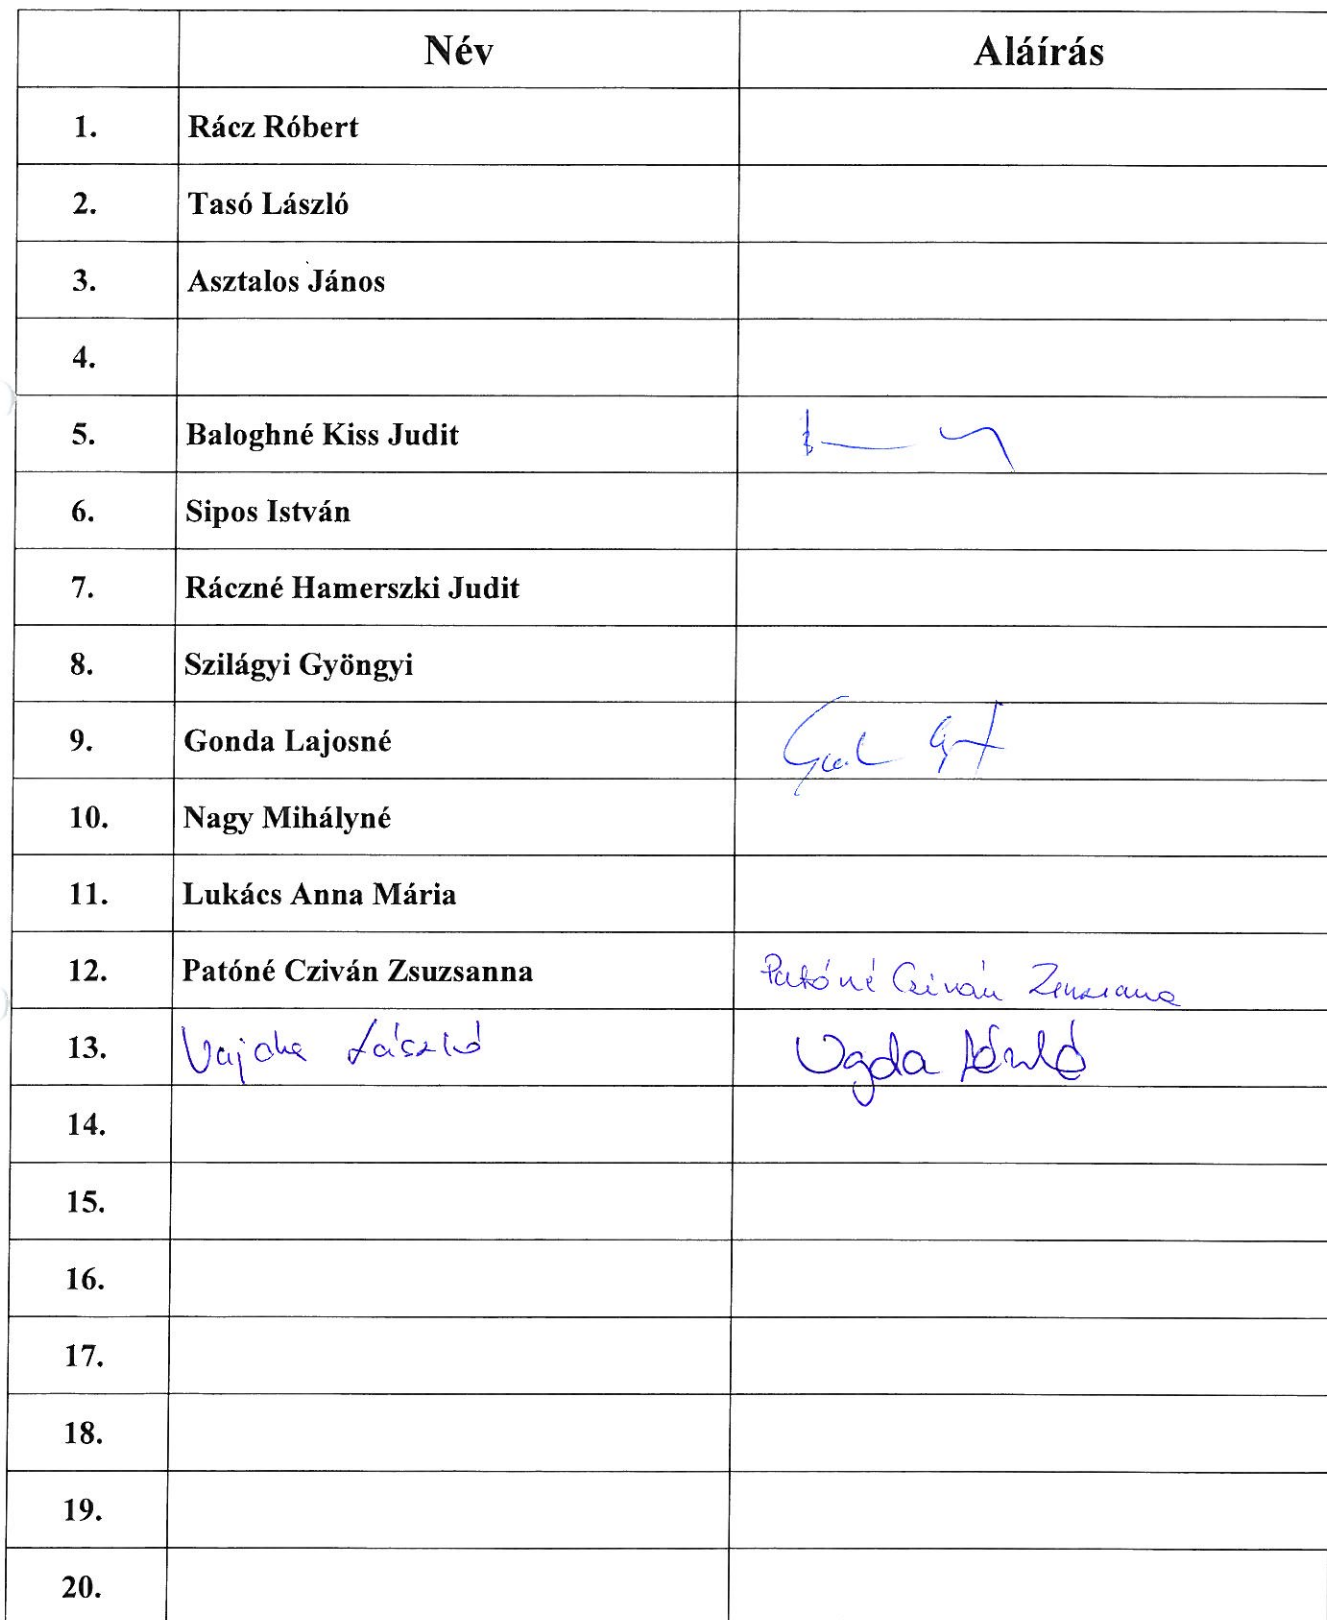 Név Aláírás
1. Rácz Róbert
2. Tasó László
3. Asztalos János
4.
5. Baloghné Kiss Judit
6. Sipos István
7. Ráczné Hamerszki Judit
8. Szilágyi Gyöngyi
9. Gonda Lajosné
10. Nagy Mihályné
11. Lukács Anna Mária
12. Patóné Cziván Zsuzsanna Patóné Cziván Zsuzsanna
13. Vajda László Vajda László
14.
15.
16.
17.
18.
19.
20.